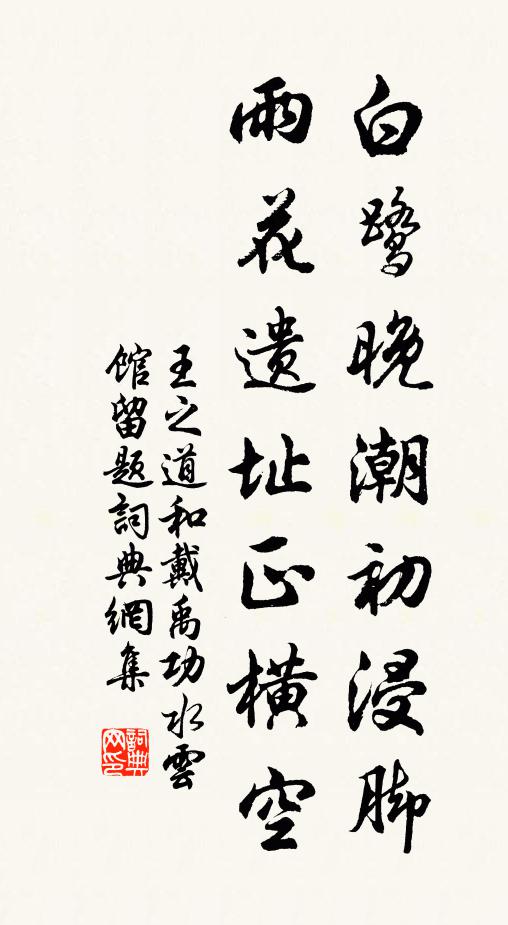 白鹭晚潮初浸脚
雨花遗址正横空
王之道和戴禹功水雲
馆留题詞典網集
詞典
网印